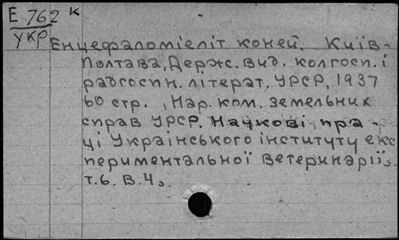 Е 762 к
укр
Енцефаломієліт коней. Київ-
Полтава, Держ. вид. колгосп. і
радгоспн. літерат. УРСР, 1937
60 стр. , Нар. ком. земельних
справ УРСР. Наукові пра-
ці Українського інституту екс
периментальної ветеринарії.
т. 6. В. 4.